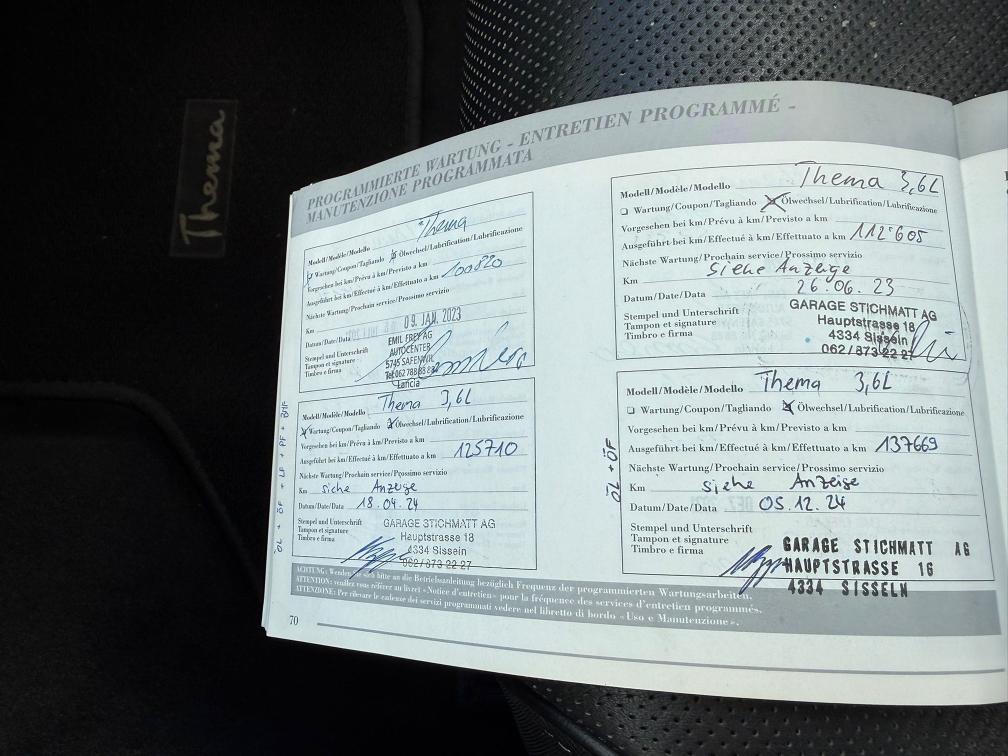 Thema
PROGRAMMIERTE WARTUNG - ENTRETIEN PROGRAMMÉ -
MANUTENZIONE PROGRAMMATA
Modell/Modèle/Modello Thema
Wartung/Coupon/Tagliando Ölwechsel/Lubrification/Lubrificazione
Vorgesehen bei km/Prévu à km/Previsto a km
Ausgeführt bei km/Effectué à km/Effettuato a km 100820
Nächste Wartung/Prochain service/Prossimo servizio
Km
Datum/Date/Data 09. JAN. 2023
Stempel und Unterschrift
Tampon et signature
Timbro e firma
EMIL FREY AG
AUTOCENTER
5745 SAFENWIL
Lancia
Modell/Modèle/Modello Thema 3,6L
Wartung/Coupon/Tagliando Ölwechsel/Lubrification/Lubrificazione
Vorgesehen bei km/Prévu à km/Previsto a km
Ausgeführt bei km/Effectué à km/Effettuato a km 112'605
Nächste Wartung/Prochain service/Prossimo servizio
Km Siehe Anzeige
Datum/Date/Data 26.06.23
Stempel und Unterschrift
Tampon et signature
Timbro e firma
GARAGE STICHMATT AG
Hauptstrasse 18
4334 Sisseln
062/873 22 27
ÖL + ÖF + LF + PF + BMF
Modell/Modèle/Modello Thema 3,6L
Wartung/Coupon/Tagliando Ölwechsel/Lubrification/Lubrificazione
Vorgesehen bei km/Prévu à km/Previsto a km
Ausgeführt bei km/Effectué à km/Effettuato a km 125710
Nächste Wartung/Prochain service/Prossimo servizio
Km siehe Anzeige
Datum/Date/Data 18.04.24
Stempel und Unterschrift
Tampon et signature
Timbro e firma
GARAGE STICHMATT AG
Hauptstrasse 18
4334 Sisseln
062/873 22 27
ÖL + ÖF
Modell/Modèle/Modello Thema 3,6L
Wartung/Coupon/Tagliando Ölwechsel/Lubrification/Lubrificazione
Vorgesehen bei km/Prévu à km/Previsto a km
Ausgeführt bei km/Effectué à km/Effettuato a km 137669
Nächste Wartung/Prochain service/Prossimo servizio
Km siehe Anzeige
Datum/Date/Data 05.12.24
Stempel und Unterschrift
Tampon et signature
Timbro e firma
GARAGE STICHMATT AG
HAUPTSTRASSE 16
4334 SISSELN
ACHTUNG: Wenden Sie sich bitte an die Betriebsanleitung bezüglich Frequenz der programmierten Wartungsarbeiten.
ATTENTION: veuillez vous référer au livret «Notice d'entretien» pour la fréquence des services d'entretien programmés.
ATTENZIONE: Per rilevare le cadenze dei servizi programati vedere nel libretto di bordo «Uso e Manutenzione».
70